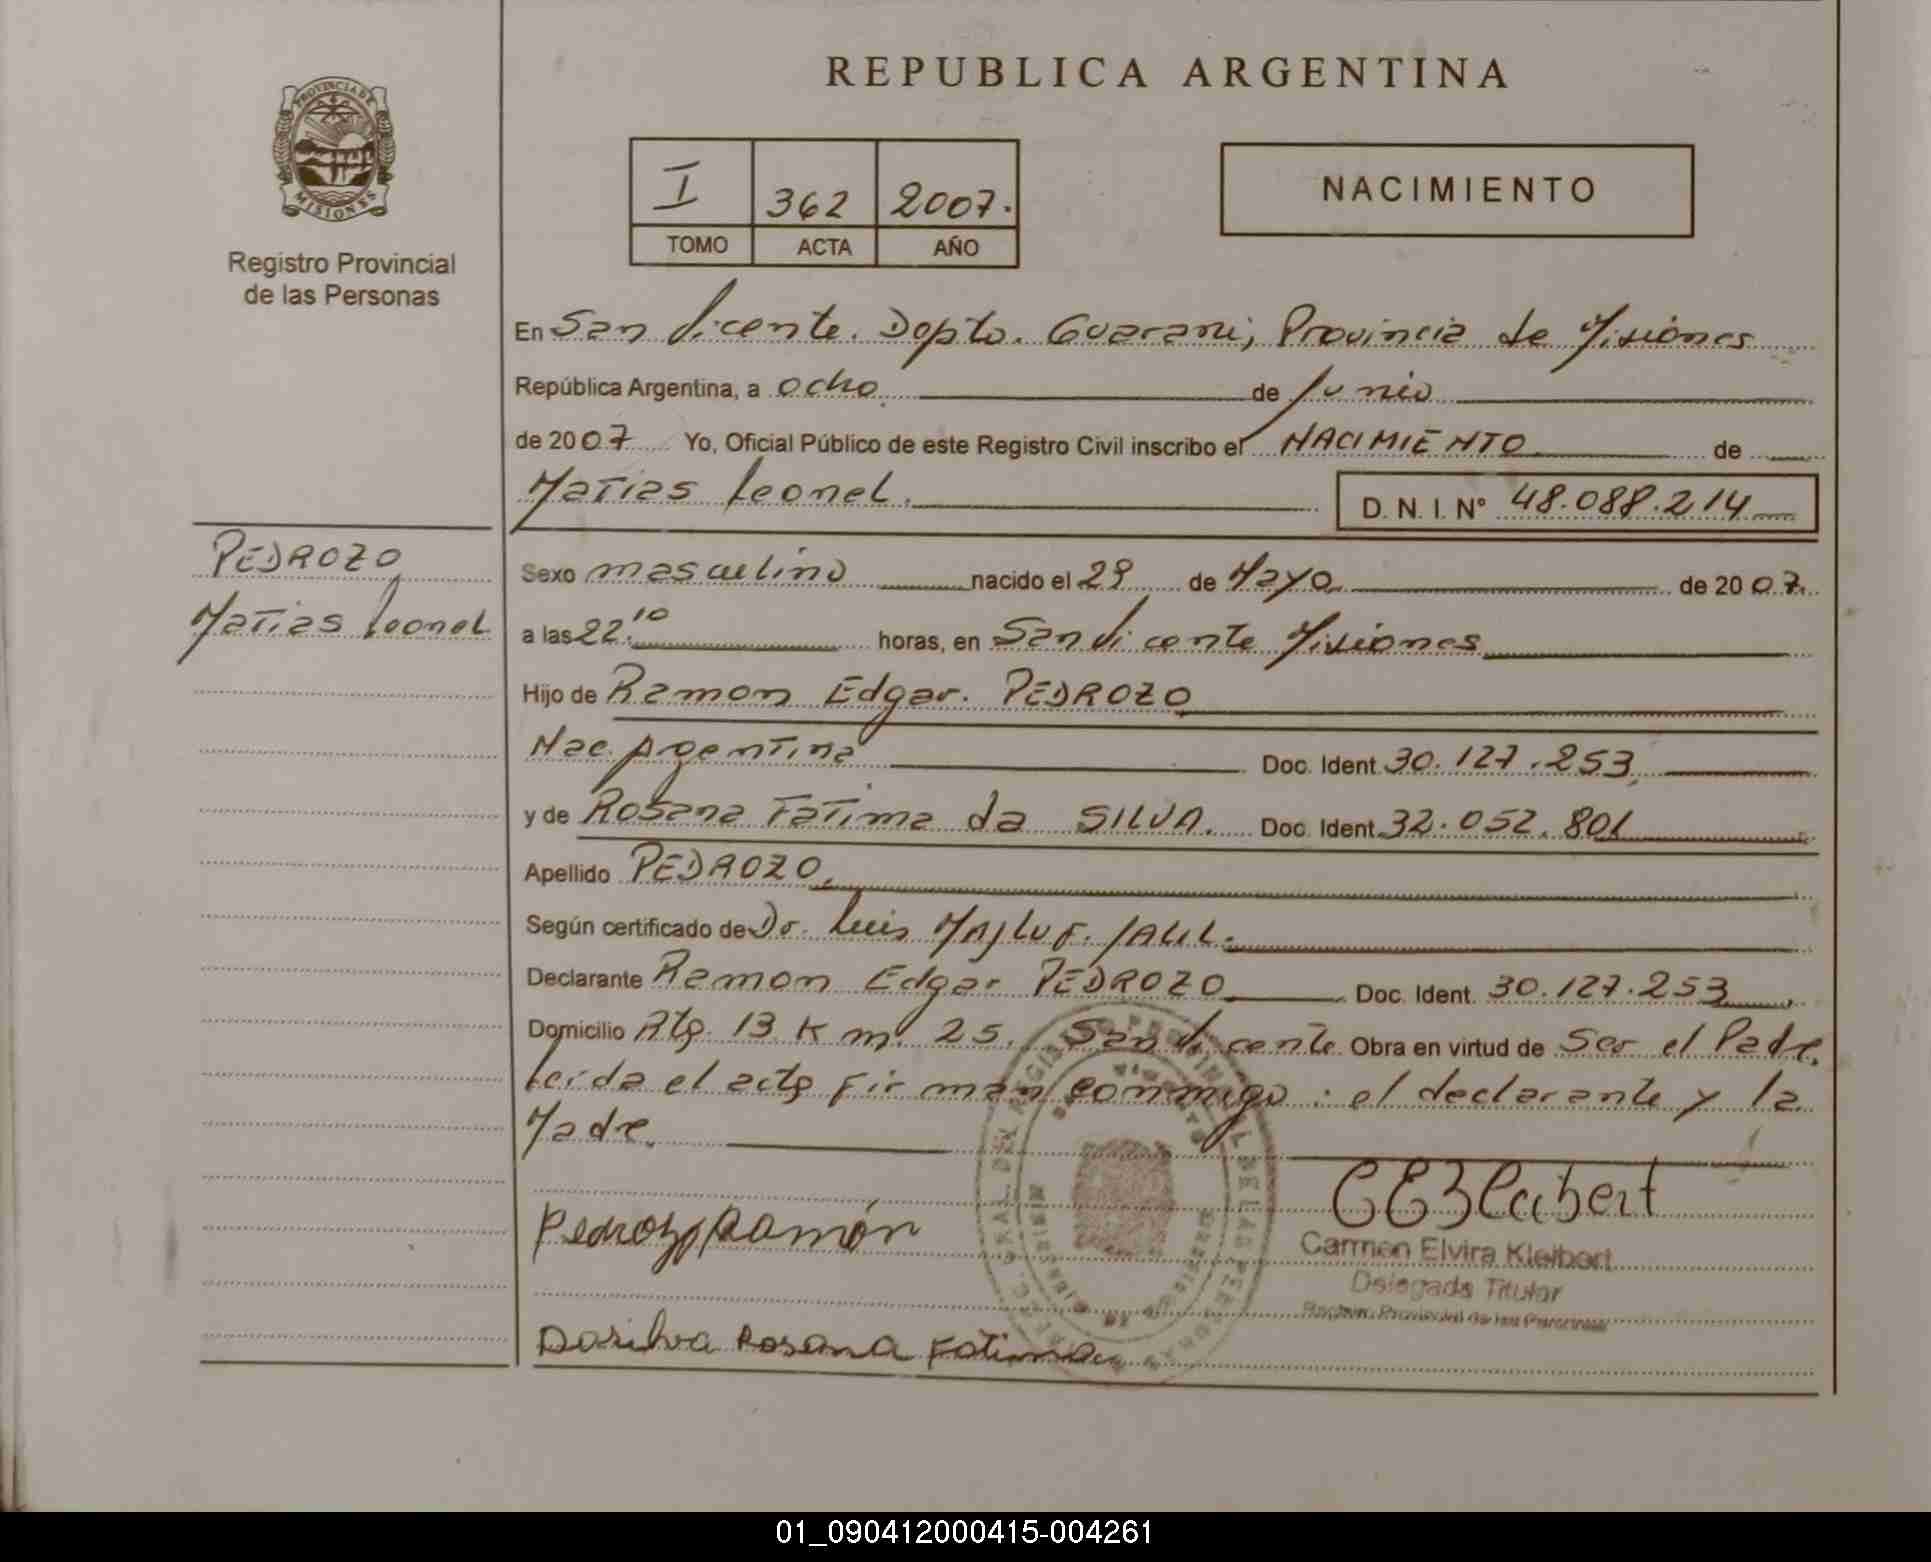 REPUBLICA ARGENTINA
PROVINCIA DE
MISIONES
Registro Provincial
de las Personas
I 362 2007.
TOMO ACTA AÑO
NACIMIENTO
En San Vicente. Dpto. Guarani, Provincia de Misiones
República Argentina, a ocho de Junio
de 2007 Yo, Oficial Público de este Registro Civil inscribo el NACIMIENTO de
Matias Leonel.
D. N. I. Nº 48.088.214
PEDROZO
Matias Leonel
Sexo masculino nacido el 29 de Mayo de 2007.
a las 22:10 horas, en San Vicente Misiones
Hijo de Ramon Edgar. PEDROZO
Nac. Argentina Doc. Ident. 30.127.253
y de Rosana Fatima da SILVA. Doc. Ident. 32.052.801
Apellido PEDROZO.
Según certificado de Dr. Luis MAJLUF. JALIL.
Declarante Ramon Edgar PEDROZO Doc. Ident. 30.127.253
Domicilio Rtg. 13 Km. 25. San Vicente Obra en virtud de Ser el Padre.
Leida el acta firman conmigo: el declarante y la
Madre.
Pedrozo Ramón
CEKleibert
Carmen Elvira Kleibert
Delegada Titular
Registro Provincial de las Personas
Dasilva Rosana Fatima
01_090412000415-004261